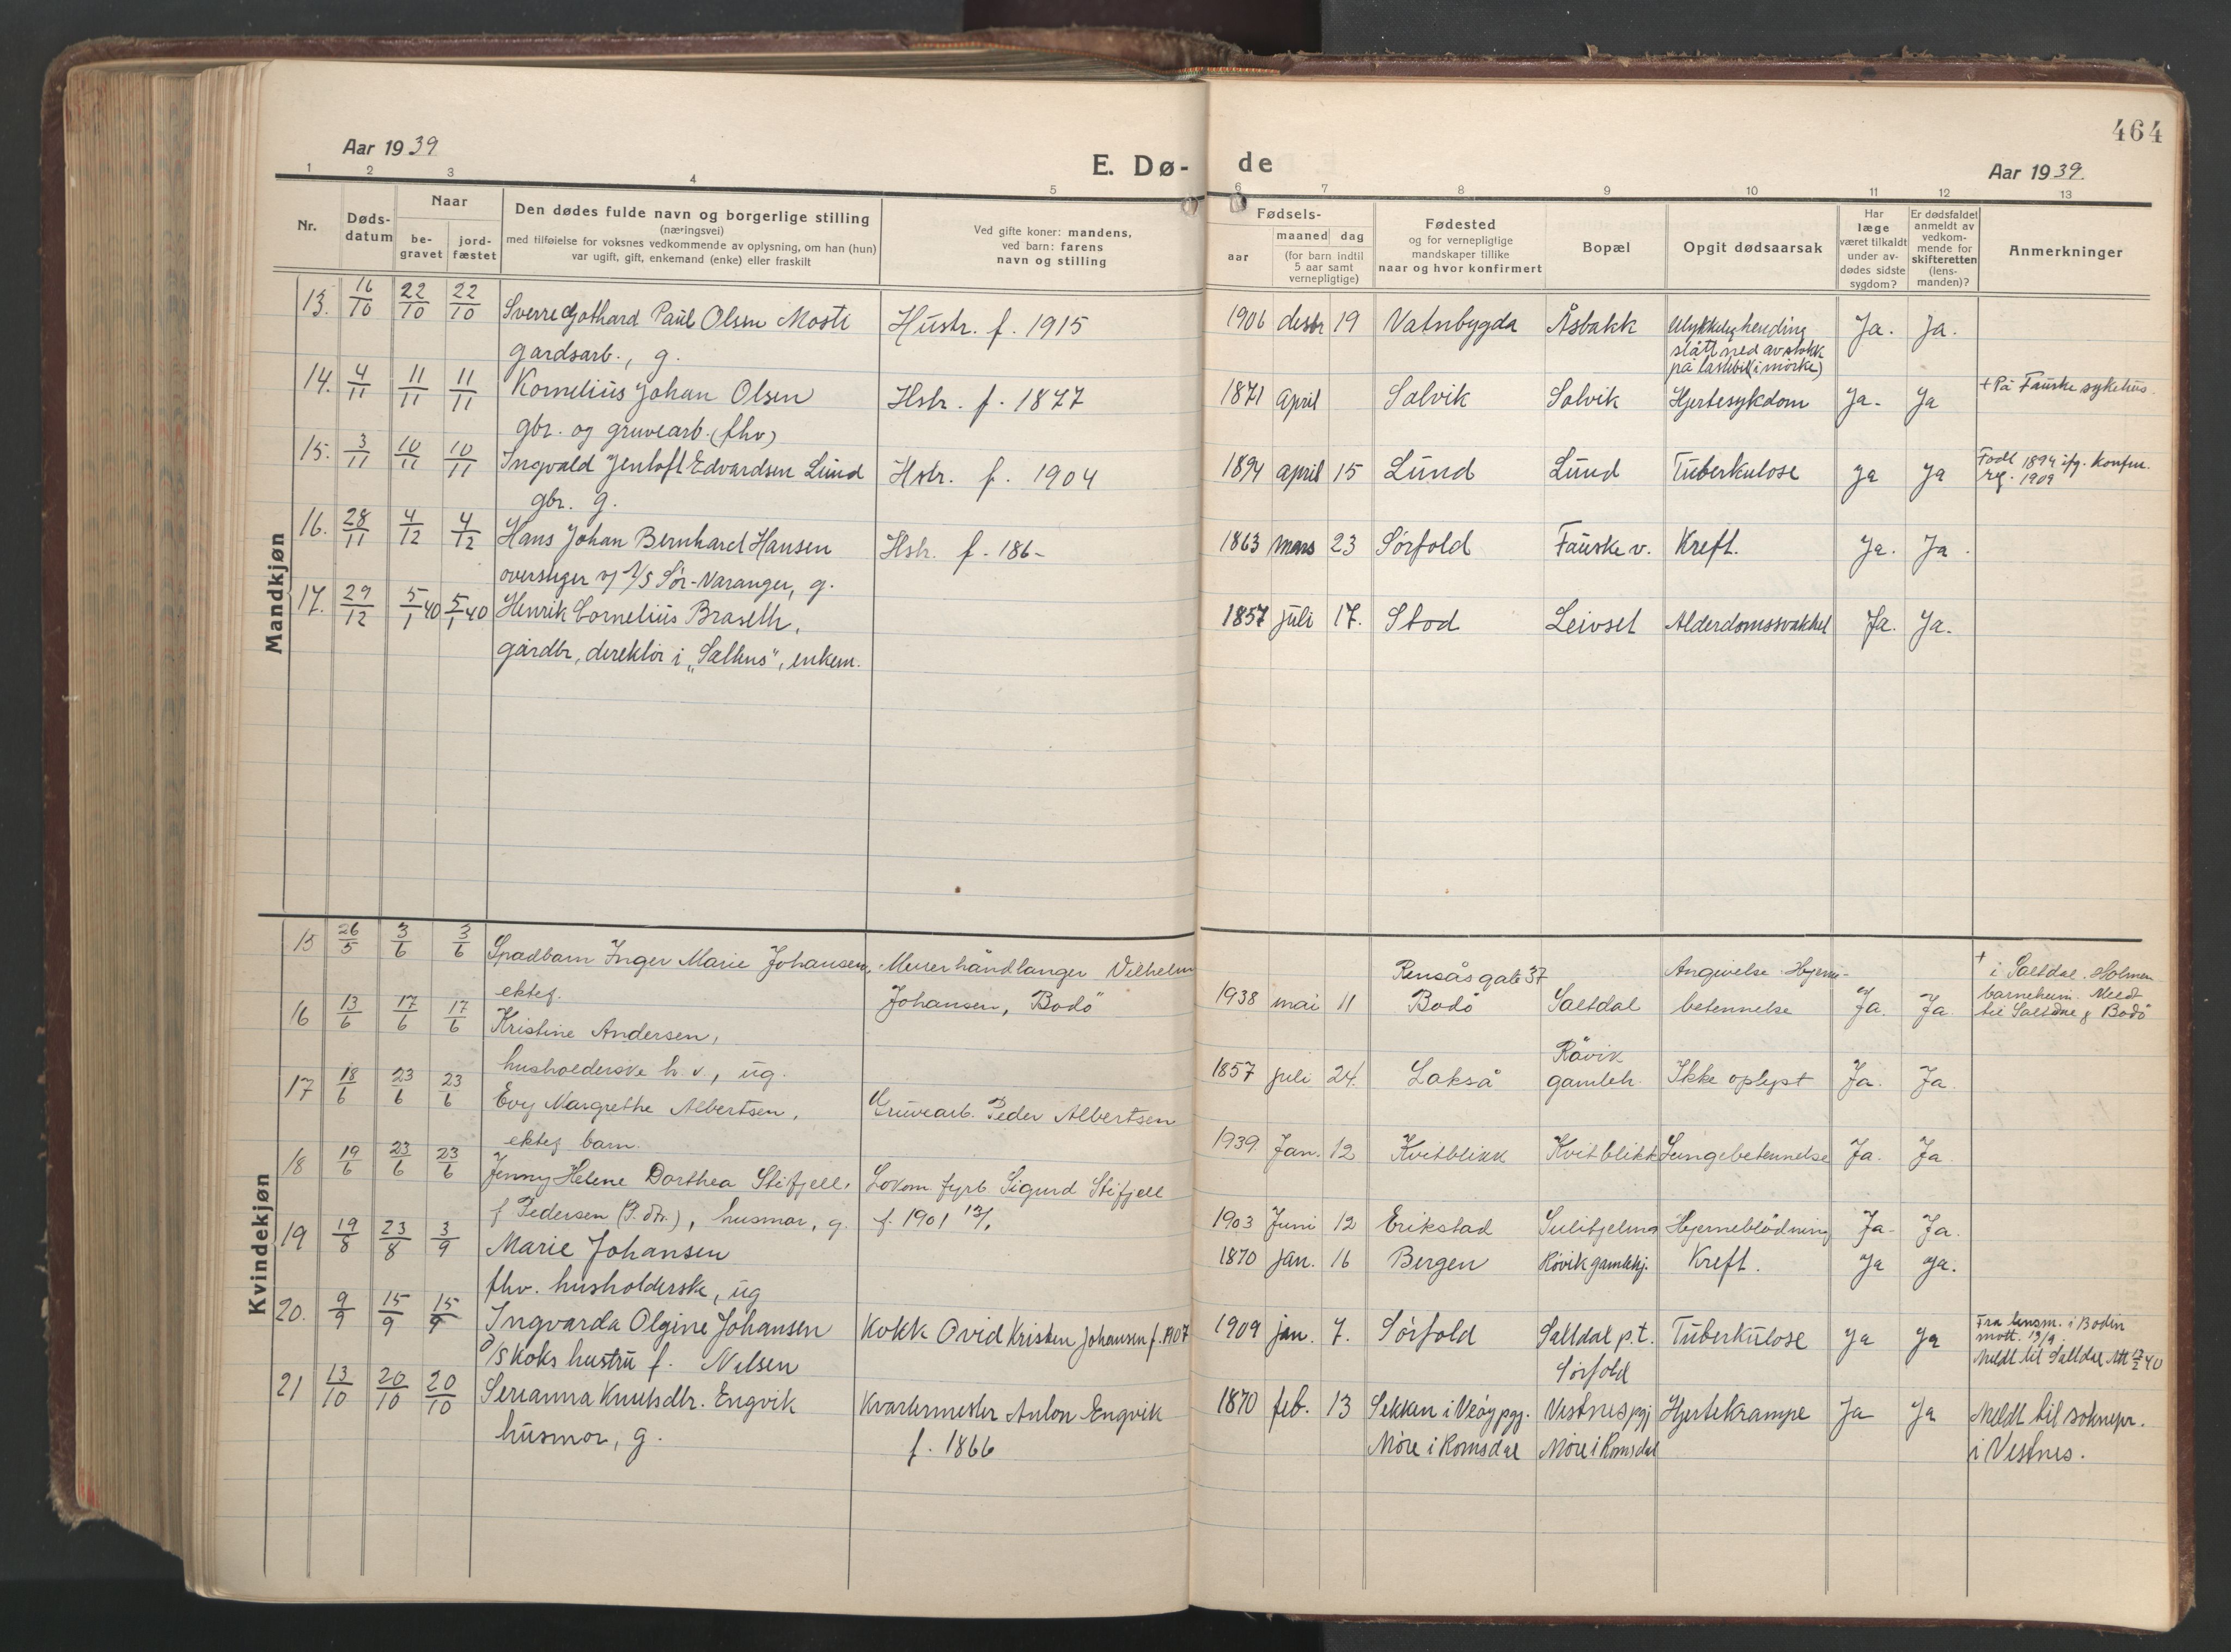 464
Aar 1939
E. Dø-
de
Aar 1939.
1 2 3 4 5 6 7 8 9 10 11 12 13
Nr.
Døds-
datum
Naar
be-
gravet
jord-
fæstet
Den dødes fulde navn og borgerlige stilling
(næringsvei)
med tilføielse for voksnes vedkommende av oplysning, om han (hun)
var ugift, gift, enkemand (enke) eller fraskilt
Ved gifte koner: mandens,
ved barn: farens
navn og stilling
Fødsels-
aar
maaned dag
(for barn indtil
5 aar samt
vernepligtige)
Fødested
og for vernepligtige
mandskaper tillike
naar og hvor konfirmert
Bopæl
Opgit dødsaarsak
Har
læge
været tilkaldt
under av-
dødes sidste
sygdom?
Er dødsfaldet
anmeldt av
vedkom-
mende for
skifteretten
(lens-
manden)?
Anmerkninger
Mandkjøn
13. 16/10 22/10 22/10 Sverre Gothard Paul Olsen Mosti Hustr. f. 1915 1906 desbr 19 Vatnbygda Åsbakk Ulykkelig hending Ja. Ja.
gardsarb., g. slått ned av stokk
på lastebil (i mörke)
14. 4/11 11/11 11/11 Kornelius Johan Olsen Hstr. f. 1877 1871 april Salvik Solvik Hjertesykdom Ja. Ja + På Fauske sykehus.
gbr. og gruvearb. (fhv)
15. 3/11 10/11 10/11 Ingvald Jentoft Edvardsen Lund Hstr. f. 1904 1894 april 15 Lund Lund Tuberkulose Ja Ja Född 1894 ifg. Konfm.
gbr. g. reg. 1909
16. 28/11 4/12 4/12 Hans Johan Bernhard Hansen Hstr. f. 186- 1863 mars 23 Sörfold Fauske v. Kreft. Ja. Ja.
overstiger v/ A/S Sör-Varanger, g.
17. 29/12 5/1 40 5/1 40 Henrik Cornelius Braseth, 1857 juli 17. Stod Leivset Alderdomssvakhet Ja. Ja.
gårdbr, direktör i "Salhus", enkem.
Kvindekjøn
15 26/5 3/6 3/6 Spadbarn Inger Marie Johansen, Murerhåndlanger Vilhelm Rensåsgate 37 Angivelse Hjerne- + i Saltdal. Holmen
ektef. Johansen, Bodö 1938 mai 11 Bodö Saltdal betennelse Ja. Ja barneheim. Meldt
til Saltdal & Bodö
16 13/6 17/6 17/6 Kristine Andersen, Råvik
husholderske h.v., ug. 1857 juli 24. Lakså gamleh. Ikke oplyst Ja. Ja.
17 18/6 23/6 23/6 Evy Margrethe Albertsen, Gruvearb. Peder Albertsen
ektef barn. 1939 Jan. 12 Kvitblikk Kvitblikk Lungebetennelse Ja. Ja
18 19/6 23/6 23/6 Jenny Helene Dorthea Stifjell. Lokom fyrb Sigurd Stifjell
f Pedersen (P. dtr.), husmor, g. f. 1901 1903 Juni 12 Erikstad Sulitjelma Hjerneblödning Ja. Ja.
19 19/8 23/8 3/9 Marie Johansen 1870 jan. 16 Bergen Rövik gamlehj. Kreft. Ja Ja.
fhv. husholdersk, ug
20. 9/9 15/9 15/9 Ingvarda Olgine Johansen Kokk Ovid Kristen Johansen f. 1907 1909 jan. 7. Sörfold Saltdal p.t. Tuberkulose Ja Ja Fra lensm. i Bodin
D/S koks hustru f. Nilsen Sörfold mott. 13/9.
Meldt til Saltdal 40
21 13/10 20/10 20/10 Serianna Knutsdtr. Engvik Kvartermester Anton Engvik 1870 feb. 13 Sekken i Veöy pgj. Vestnes pgj Hjertekrampe Ja Ja Meldt til soknepr.
husmor, g. f. 1866 Möre i Romsdal Möre i Romsdal i Vestnes.